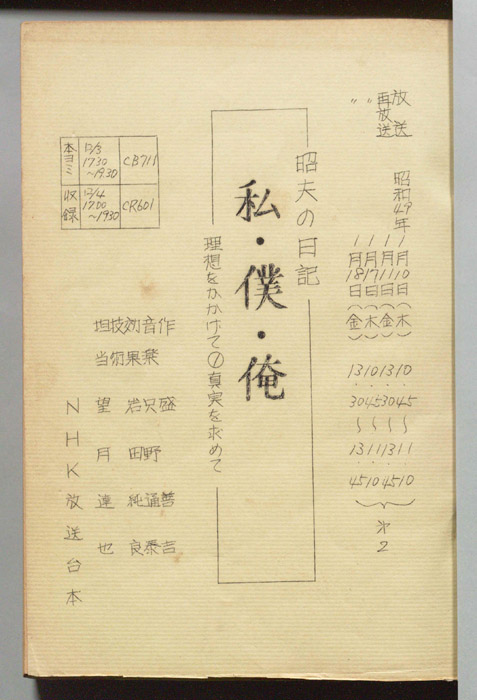 放送 昭和49年 1月10日(木) 10.45~11.10
再放送 1月11日(金) 13.30~13.45
〃 1月17日(木) 10.45~11.10
〃 1月18日(金) 13.30~13.45
㐧2
昭夫の日記
私・僕・俺
理想をかかげて①真実を求めて
作 盛善吉
音楽 宍野通泰
効果 岩田純良
技術
担当 望月達也
NHK放送台本
本ヨミ 12/3 17.30~19.30 CB711
収録 12/4 17.00~19.30 CR601